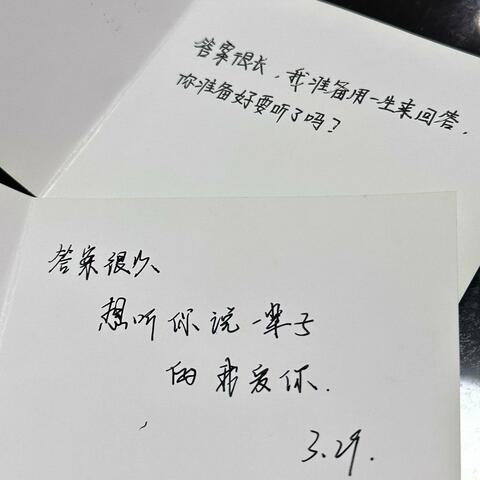 答案很长，我准备用一生来回答，
你准备好要听了吗？
答案很少
想听你说一辈子
的我爱你.
3.29.